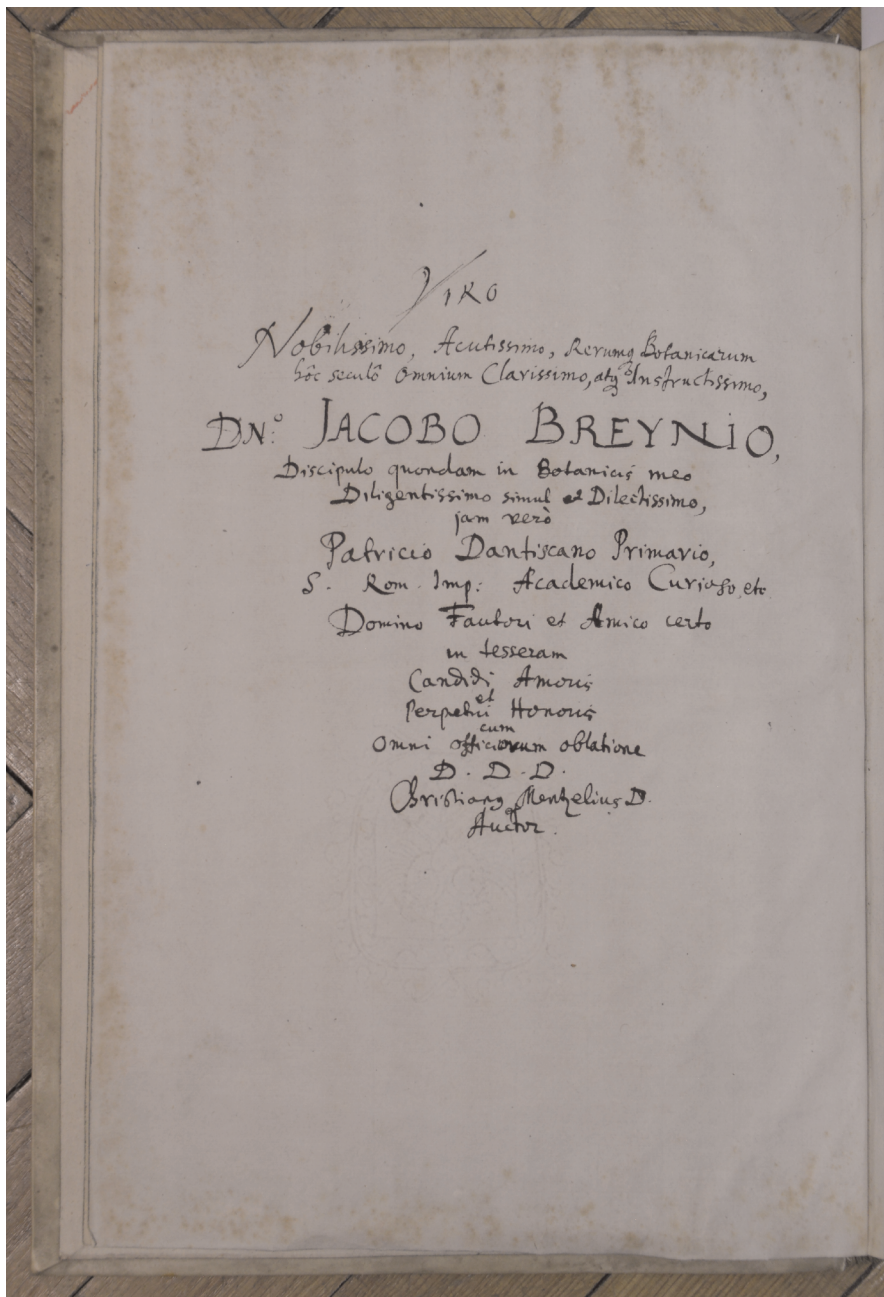 VIRO
Nobilissimo, Acutissimo, Rerumq Botanicarum
hôc seculô Omnium Clarissimo, atq Instructissimo,
DN.º JACOBO BREYNIO,
Discipulo quondam in Botanicis meo
Diligentissimo simul et Dilectissimo,
jam verò
Patricio Dantiscano Primario,
S. Rom. Imp: Academico Curioso, etc.
Domino Fautori et Amico certo
in tesseram
Candidi Amoris
et
Perpetui Honoris
cum
Omni officiorum oblatione
D. D. D.
Christianq Mentzelius D.
Auctor.